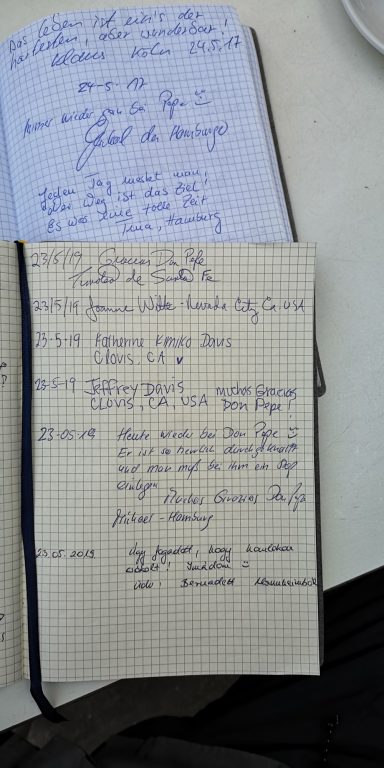 Das Leben ist eins der
härtesten, aber wunderbar!
Klaus Köln 24.5.17
24-5-17
Immer wieder gern bei Pepe
der Hamburger
Jeden Tag merkt man,
Der Weg ist das Ziel!
Es war eine tolle Zeit
Tina, Hamburg
23/5/19 Gracias Don Pepe
Trinidad de Santa Fe
23/5/19 Joanne - Nevada City Ca. USA
23-5-19 Katherine Kimiko Davis
Clovis, CA
23-5-19 Jeffrey Davis Muchos Gracias
CLOVIS, CA, USA Don Pepe!
23-05-19 Heute wieder bei Don Pepe
Er ist so herrlich durchgeknallt
und man muß bei ihm ein Stop
einlegen
Muchas Gracias Don Pepe
Michael - Hamburg
23.05.2019. Úgy fogadott, hogy
Imádom
Üdv! Bernadett